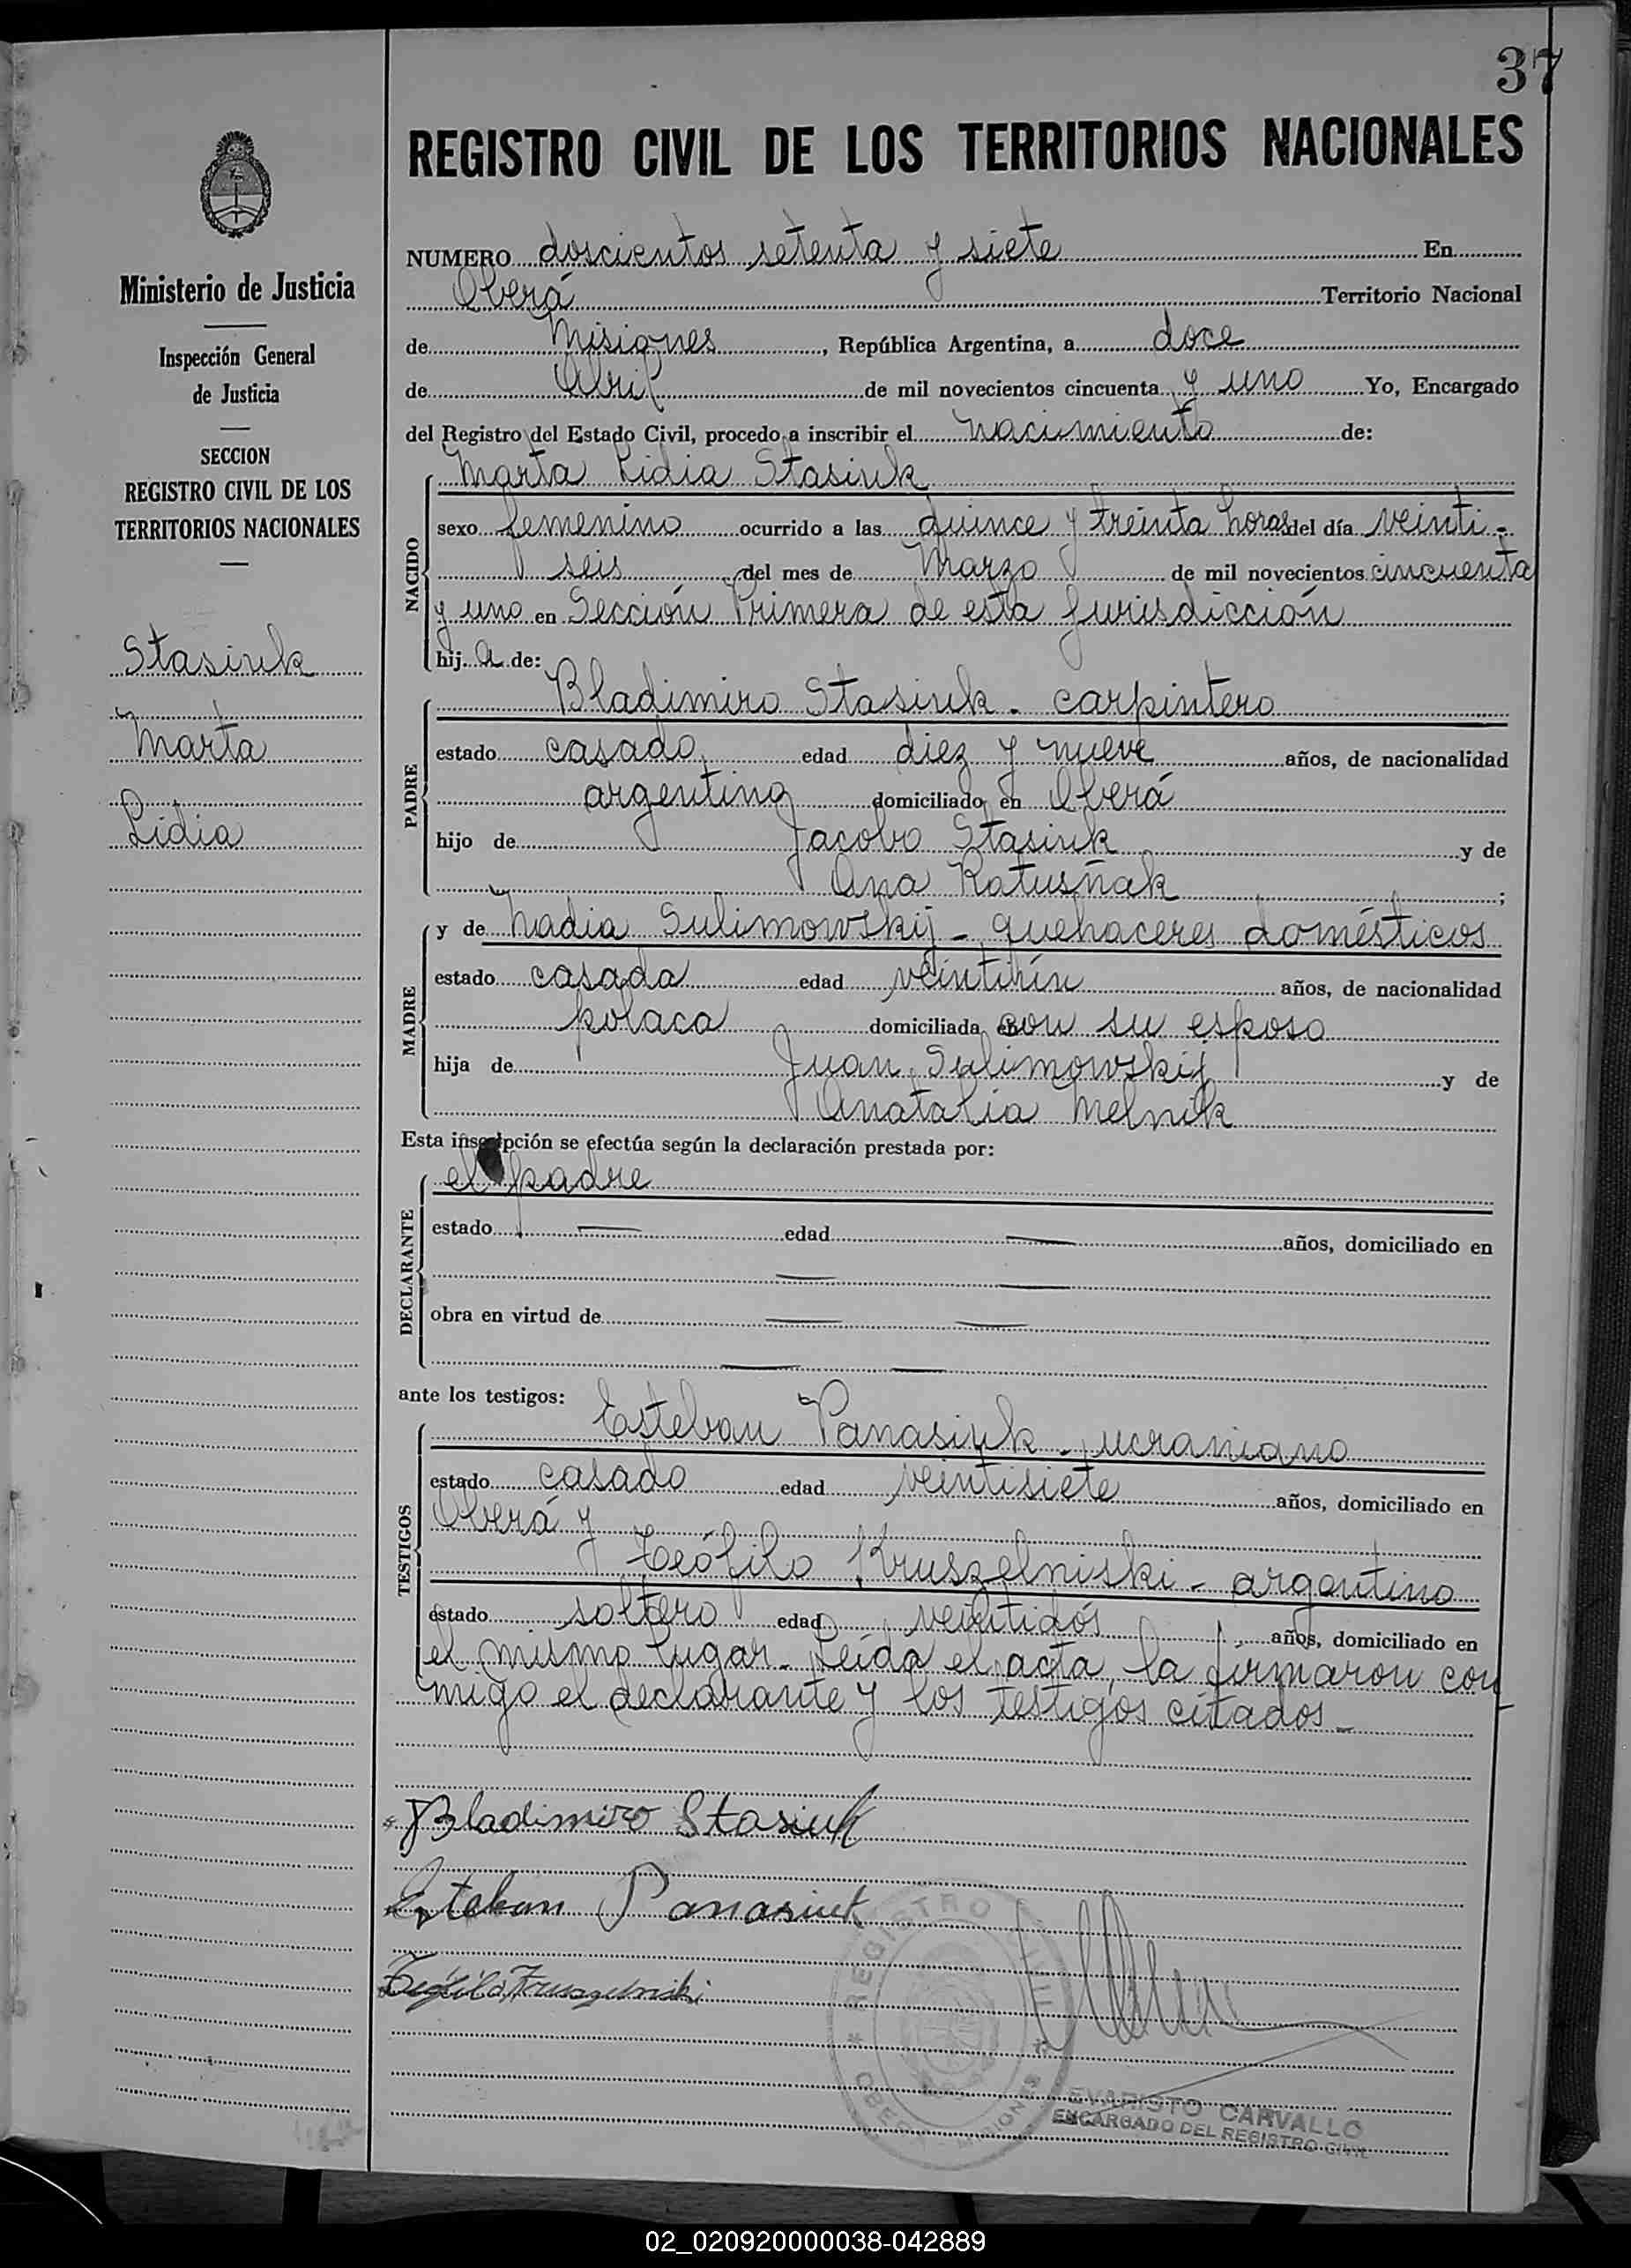 37
REGISTRO CIVIL DE LOS TERRITORIOS NACIONALES
Ministerio de Justicia
Inspección General
de Justicia
SECCION
REGISTRO CIVIL DE LOS
TERRITORIOS NACIONALES
Stasiuk
Marta
Lidia
NUMERO doscientos setenta y siete En
Oberá Territorio Nacional
de Misiones, República Argentina, a doce
de Abril de mil novecientos cincuenta y uno Yo, Encargado
del Registro del Estado Civil, procedo a inscribir el nacimiento de:
NACIDO
Marta Lidia Stasiuk
sexo femenino ocurrido a las quince y treinta horas del día veinti-
seis del mes de Marzo de mil novecientos cincuenta
y uno en Sección Primera de esta jurisdicción
hij a de:
PADRE
Bladimiro Stasiuk - carpintero
estado casado edad diez y nueve años, de nacionalidad
argentina domiciliado en Oberá
hijo de Jacobo Stasiuk y de
Ana Ratusñak ;
MADRE
y de Nadia Sulimowskij - quehaceres domésticos
estado casada edad veintiún años, de nacionalidad
polaca domiciliada con su esposo
hija de Juan Sulimowskij y de
Anatalia Melnik
Esta inscripción se efectúa según la declaración prestada por:
DECLARANTE
el padre
estado — edad — años, domiciliado en
— —
obra en virtud de — —
— —
ante los testigos:
TESTIGOS
Esteban Panasiuk - ucraniano
estado casado edad veintisiete años, domiciliado en
Oberá y
Teófilo Kruszelniski - argentino
estado soltero edad veintidós años, domiciliado en
el mismo lugar. Leída el acta, la firmaron con
migo el declarante y los testigos citados -
Bladimiro Stasiuk
Esteban Panasiuk
Teófilo Kruszelniski
REGISTRO CIVIL
OBERÁ - MISIONES
EVARISTO CARVALLO
ENCARGADO DEL REGISTRO CIVIL
02_020920000038-042889